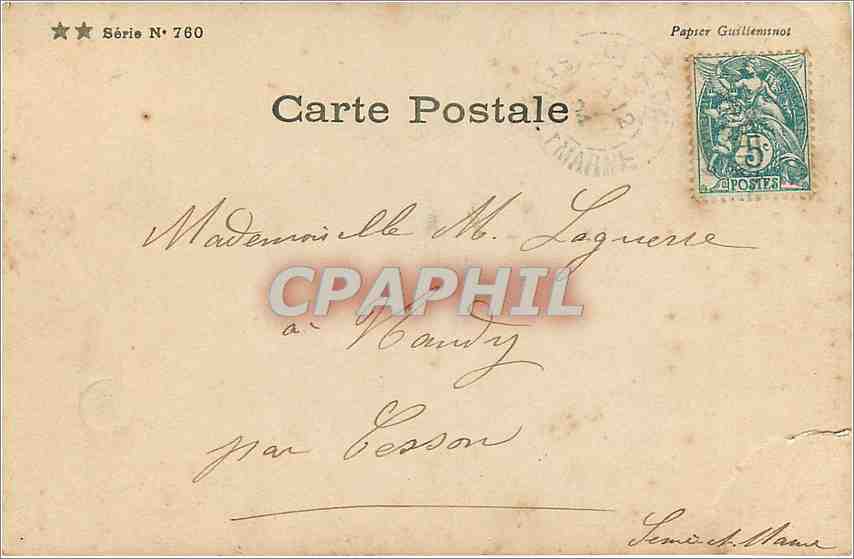 ★★ Série N° 760
Papier Guilleminot
Carte Postale
MARNE
5c
POSTES
Mademoiselle M. Laguesse
CPAPHIL
à Nandy
par Cesson
Seine et Marne